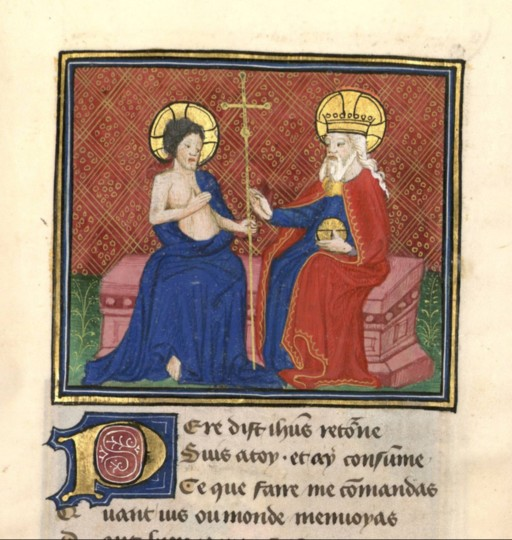 Pere dist ihūs retoʳne
Suis atoy · et ay consūme
Ce que faire me cōmandas
Quant ius ou monde menuoyas